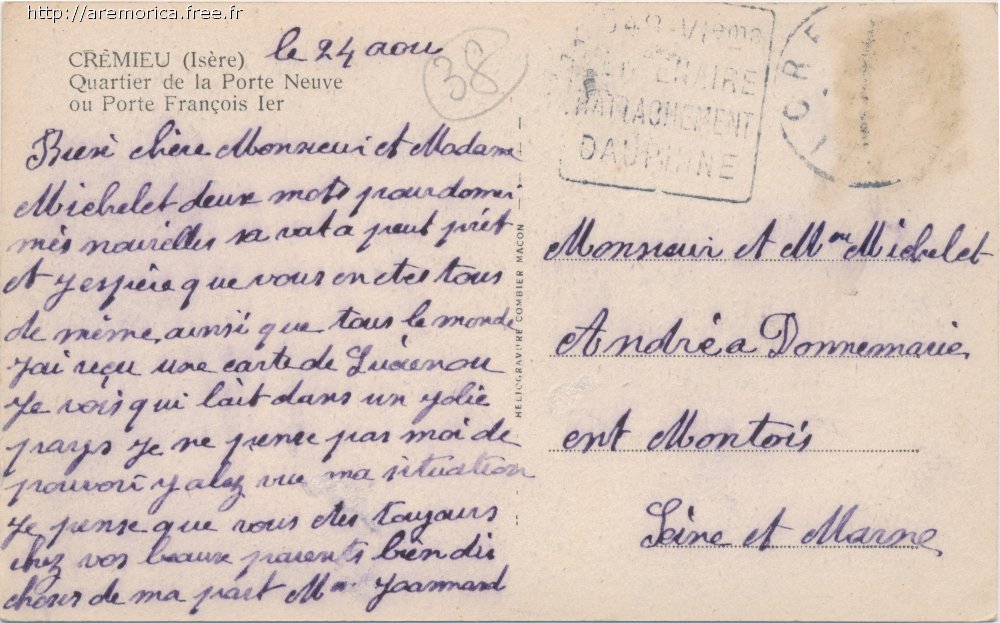 http://aremorica.free.fr
CRÉMIEU (Isère)
Quartier de la Porte Neuve
ou Porte François Ier
le 24 aou
38
VIème
RATTACHEMENT
DAUPHINE
chère Monsieur et Madame
Michelet deux mots pour domer
mès nouvelles sa vat a peut prét
et j'espère que vous en etes tous
de même, ainsi que tous le monde
J'ai reçu une carte de
Je vois qui lait dans un jolie
pays je ne pense pas moi de
pouvoir y alez vue ma situation
Je pense que vous etes toujours
chez vos beaux parents bien dis
choses de ma part Mme
HELIOGRAVURE COMBIER MACON
Monsieur et Mme Michelet
André a Donnemarie
ent Montois
Seine et Marne